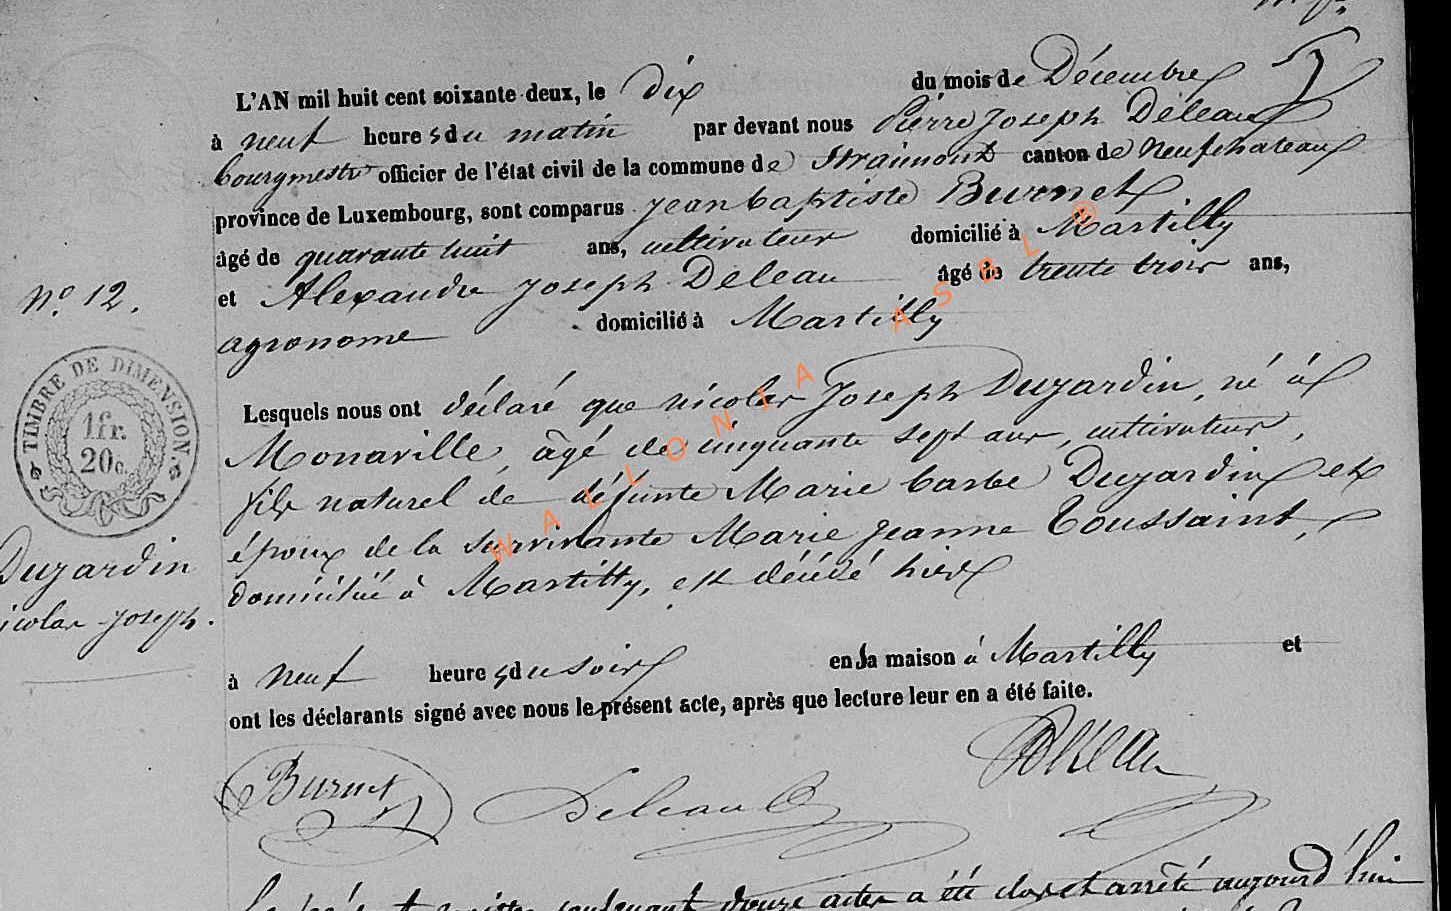 L'AN mil huit cent soixante-deux, le dix du mois de Décembre
à neuf heures du matin par devant nous Pierre Joseph Deleau
bourgmestre officier de l'état civil de la commune de Straimont canton de Neufchateau
province de Luxembourg, sont comparus Jean baptiste Burnet
âgé de quarante huit ans, cultivateur domicilié à Martilly
et Alexandre Joseph Deleau âgé de trente trois ans,
agronome domicilié à Martilly
Lesquels nous ont déclaré que nicolas Joseph Duzardin, né à
Monaville, âgé de cinquante sept ans, cultivateur,
fils naturel de défunte Marie barbe Duzardin et
époux de la survivante Marie Jeanne Toussaint,
domicilié à Martilly, est décédé hier
à neuf heures du soir en sa maison à Martilly et
ont les déclarants signé avec nous le présent acte, après que lecture leur en a été faite.
Burnet Deleau Deleau
N° 12.
TIMBRE DE DIMENSION.
1fr.
20c.
Duzardin
icolas Joseph.
WALLONIA ASBL ®
le présent registre contenant douze actes a été clos et arrêté aujourd'hui